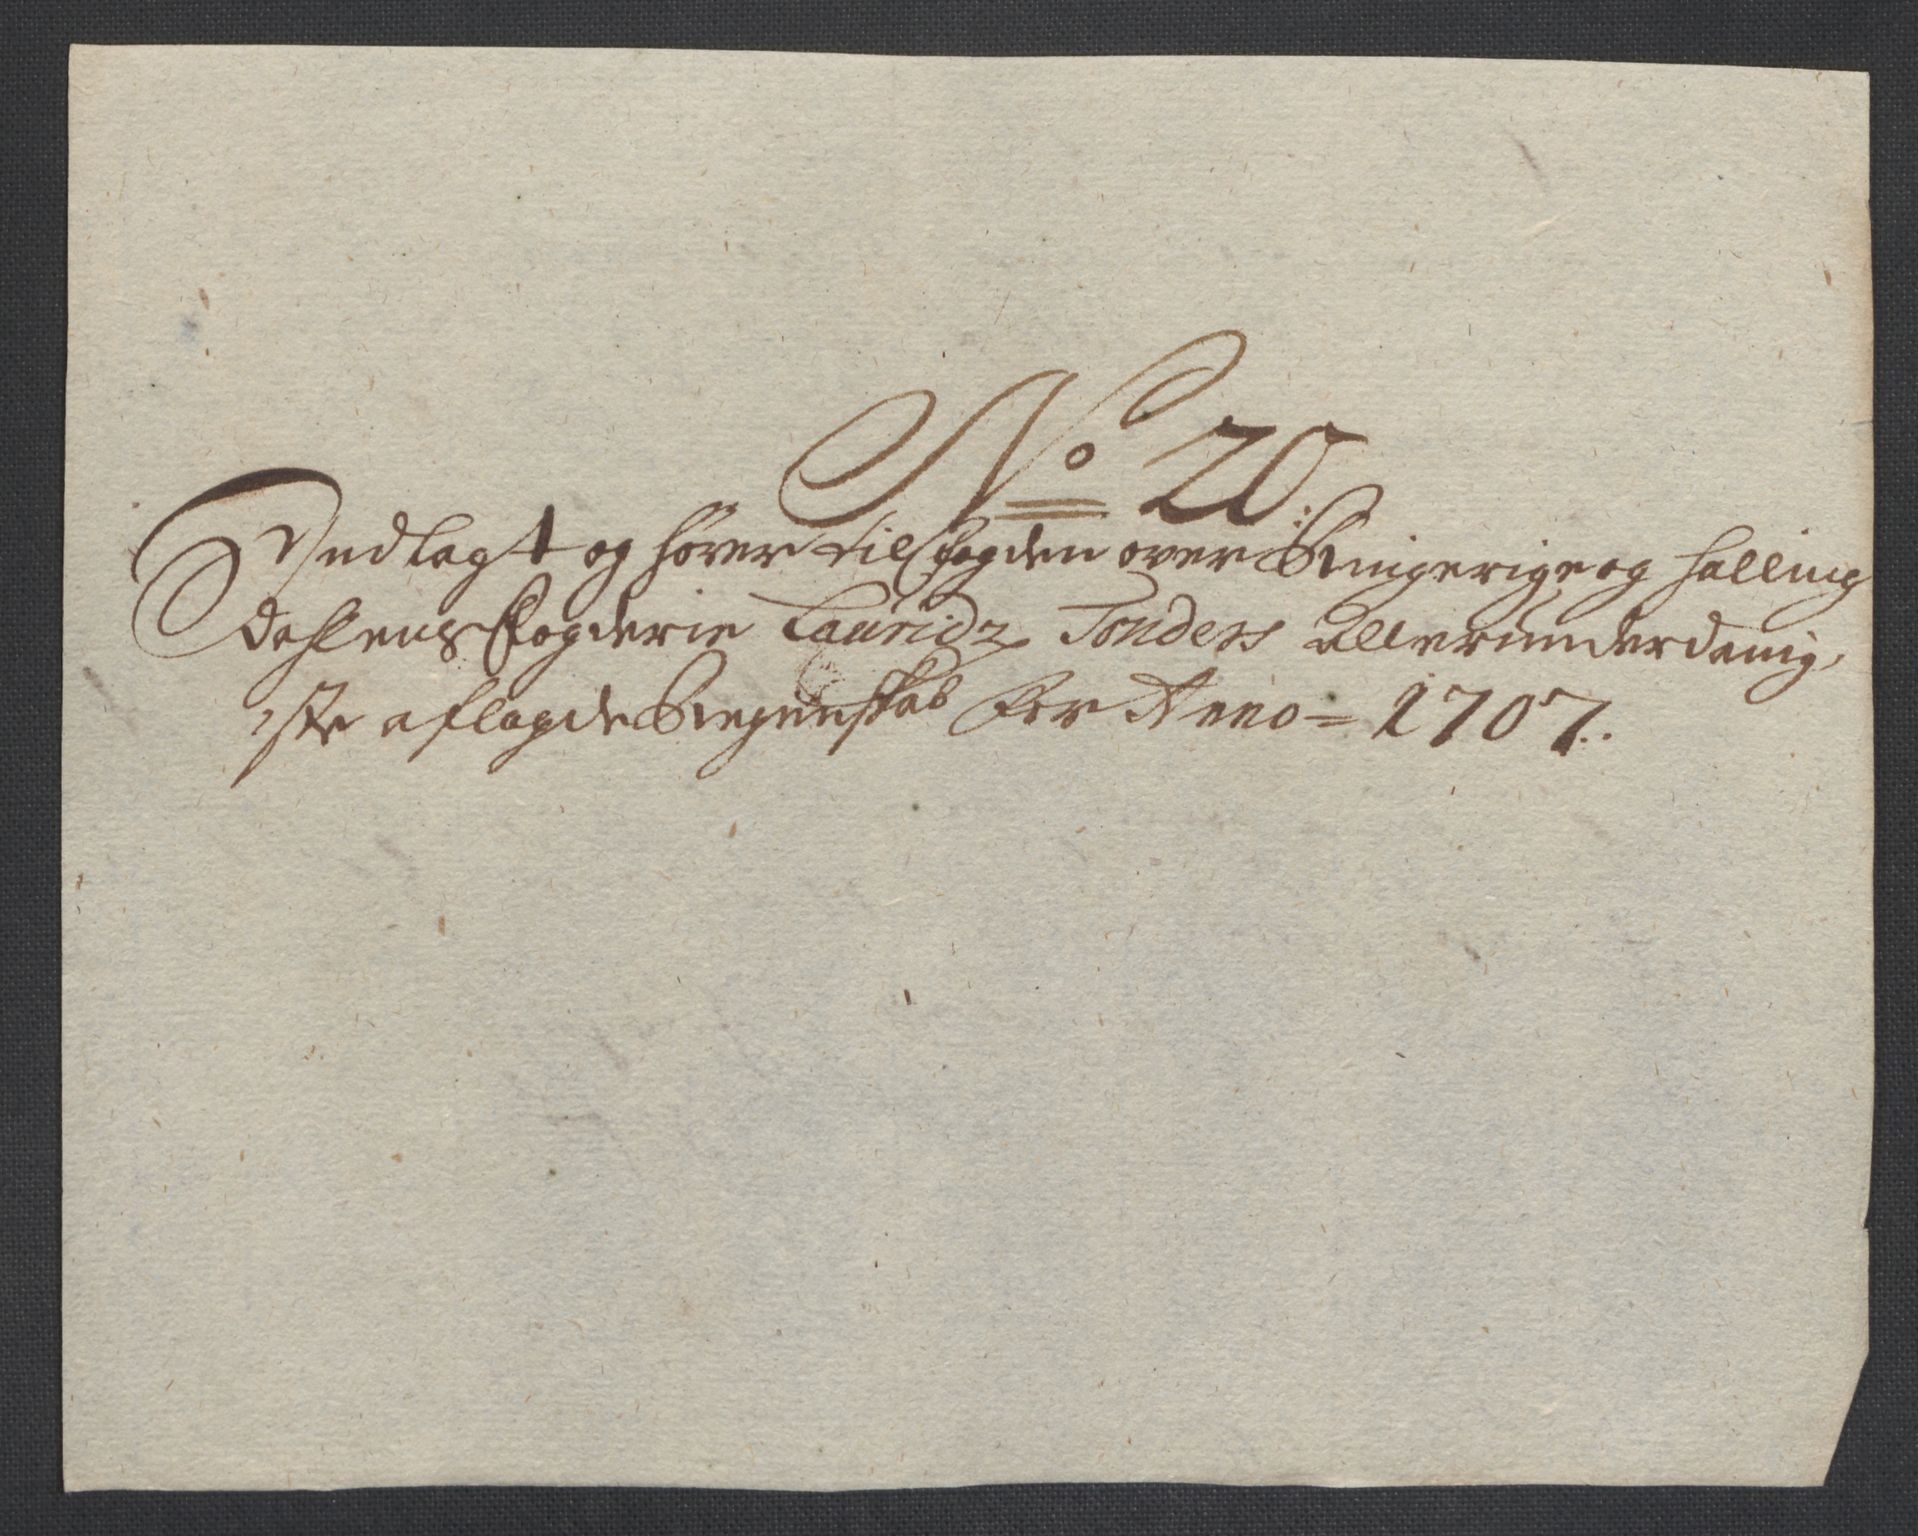 No 20.
Indlagt og hører til fogden over Ringerige og Halling
dahlens fogderie Lauridz Tonders allerunderdanig
iste aflagde Regenskab for Anno = 1707.